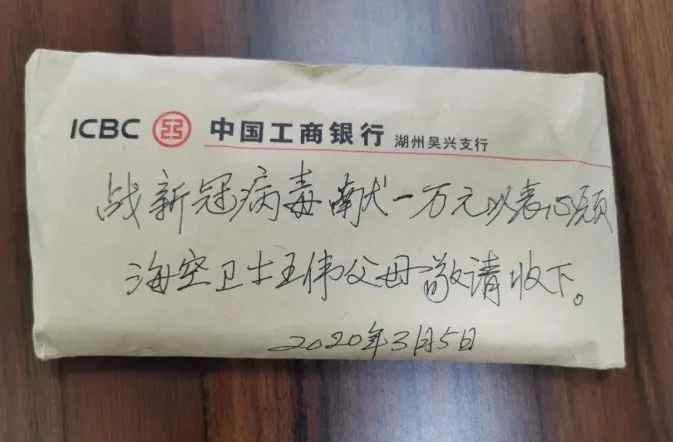 ICBC 中国工商银行 湖州吴兴支行
战新冠病毒献一万元以表心愿
海空卫士王伟父母敬请收下。
2020年3月5日